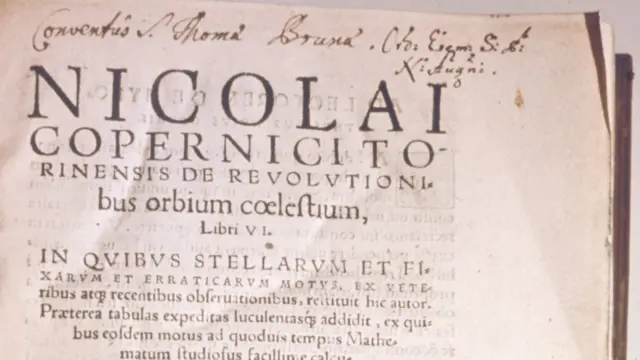 Conventûs S. Thomæ Brunæ. Ord: Erem: S: P:
N: Augni.
NICOLAI
COPERNICI TO-
RINENSIS DE REVOLVTIONI-
bus orbium cœleſtium,
Libri VI.
IN QVIBVS STELLARVM ET FI-
XARVM ET ERRATICARVM MOTVS, EX VETE-
ribus atq; recentibus obſeruationibus, reſtituit hic autor.
Præterea tabulas expeditas luculentasq; addidit, ex qui-
bus eoſdem motus ad quoduis tempus Mathe-
matum ſtudioſus facillime calcu